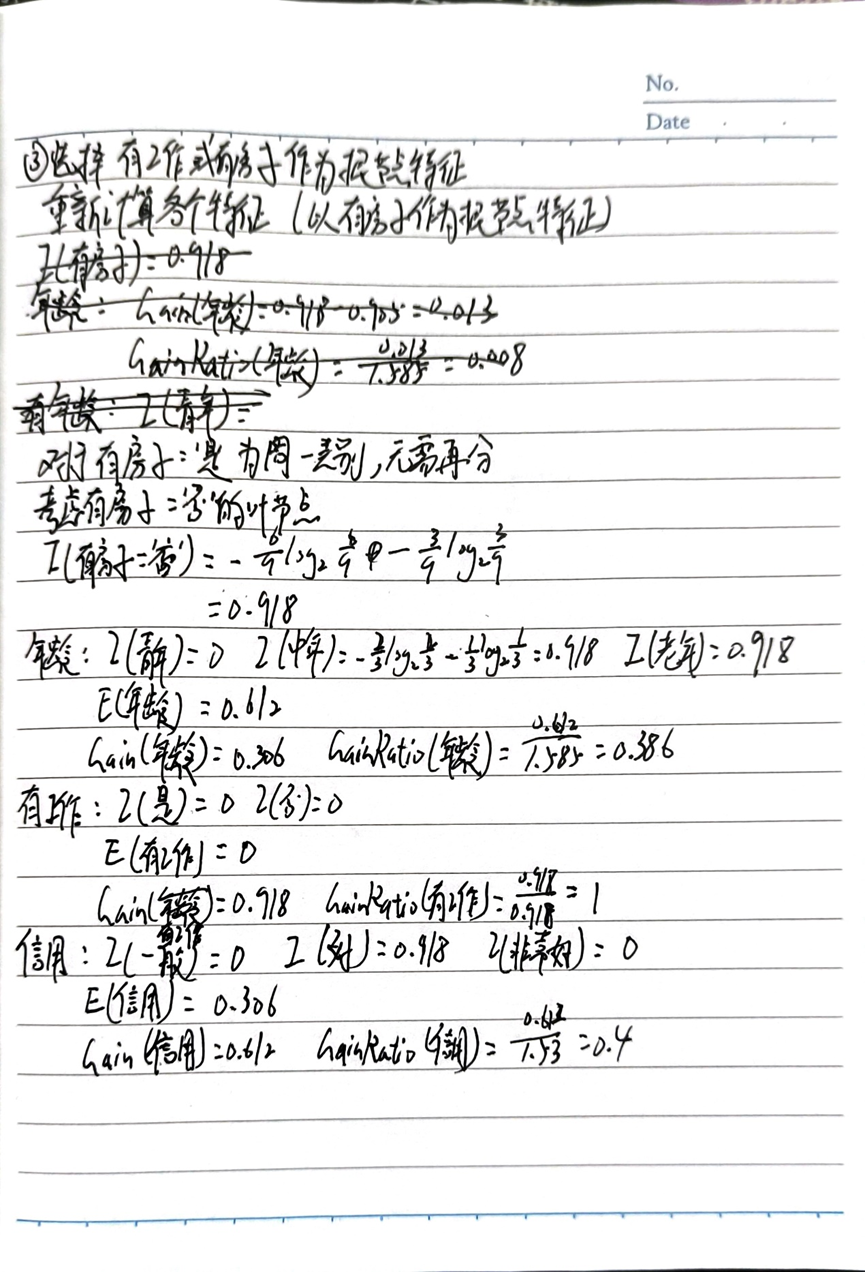 No.
Date
③选择 有工作或有房子作为根节点特征
重新计算各个特征（以有房子作为根节点特征）
I(有房子)=0.918
年龄: Gain(年龄)=0.918-0.905=0.013
GainRatio(年龄)=0.013/1.585=0.008
有年龄: I(青年)=
对于有房子='是'为同一类别,无需再分
考虑有房子='否'的叶节点
I(有房子='否')=-6/9 log₂ 6/9 - 3/9 log₂ 3/9
=0.918
年龄: I(青年)=0 I(中年)=-2/3 log₂ 2/3 - 1/3 log₂ 1/3=0.918 I(老年)=0.918
E(年龄)=0.612
Gain(年龄)=0.306 GainRatio(年龄)=0.612/1.585=0.386
有工作: I(是)=0 I(否)=0
E(有工作)=0
Gain(年龄)=0.918 GainRatio(有工作)=0.918/0.918=1
有工作
信用: I(一般)=0 I(好)=0.918 I(非常好)=0
E(信用)=0.306
Gain(信用)=0.612 GainRatio(信用)=0.612/1.53=0.4